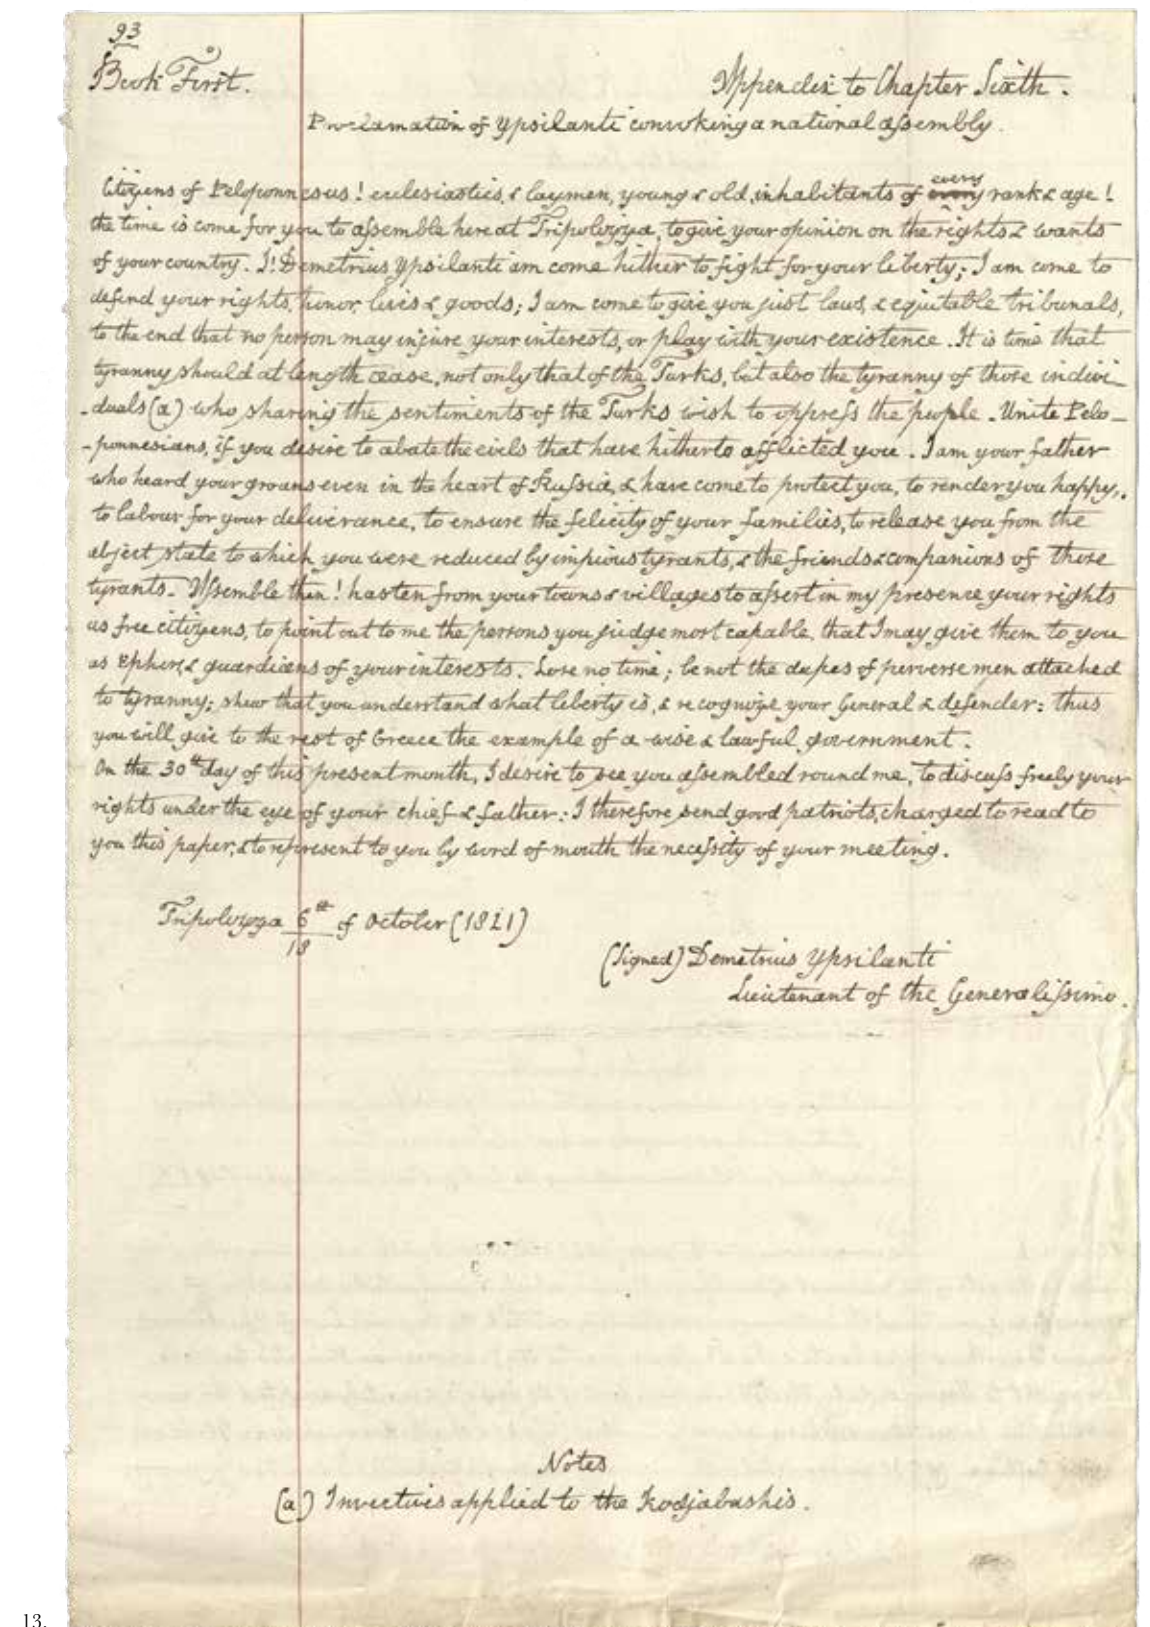 93
Book First.
Appendix to Chapter Sixth.
Proclamation of Ypsilanti convoking a national assembly.
Citizens of Peloponnesus! ecclesiastics, & laymen, young & old, inhabitants of every every rank & age!
the time is come for you to assemble here at Tripolizza, to give your opinion on the rights & wants
of your country. I! Demetrius Ypsilanti am come hither to fight for your liberty; I am come to
defend your rights, honor, lives & goods; I am come to give you just laws, & equitable tribunals,
to the end that no person may injure your interests, or play with your existence. It is time that
tyranny should at length cease, not only that of the Turks, but also the tyranny of those indivi-
-duals (a) who sharing the sentiments of the Turks wish to oppress the people. Unite Pelo-
-ponnesians, if you desire to abate the evils that have hitherto afflicted you. I am your father
who heard your groans even in the heart of Russia, & have come to protect you, to render you happy,
to labour for your deliverance, to ensure the felicity of your families, to release you from the
abject state to which you were reduced by impious tyrants, & the friends & companions of those
tyrants. Assemble then! hasten from your towns & villages to assert in my presence your rights
as free citizens, to point out to me the persons you judge most capable, that I may give them to you
as Ephors, & guardians of your interests. Lose no time; be not the dupes of perverse men attached
to tyranny; shew that you understand what liberty is, & recognize your General & defender: thus
you will give to the rest of Greece the example of a wise & lawful government.
On the 30th day of this present month, I desire to see you assembled round me, to discuss freely your
rights under the eye of your chief & father: I therefore send good patriots, charged to read to
you this paper, & to represent to you by word of mouth the necessity of your meeting.
Tripolizza 6th of October (1821)
18
(Signed) Demetrius Ypsilanti
Lieutenant of the Generalissimo.
Notes
(a) Invectives applied to the Kodjabashis.
13.